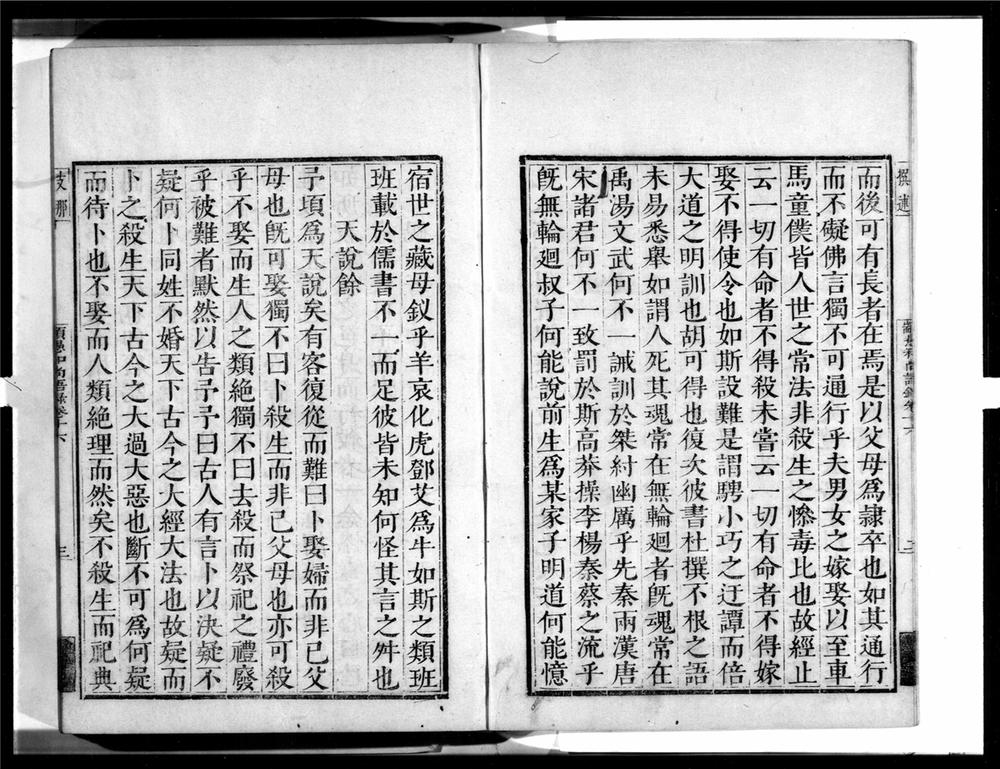 而後可有長者在焉是以父母爲隷卒也如其通行
而不礙佛言獨不可通行乎夫男女之嫁娶以至車
馬童僕皆人世之常法非殺生之慘毒比也故經止
云一切有命者不得殺未嘗云一切有命者不得嫁
娶不得使令也如斯設難是謂騁小巧之迂譚而倍
大道之明訓也胡可得也復次彼書杜撰不根之語
未易悉舉如謂人死其魂常在無輪迴者旣魂常在
禹湯文武何不一誡訓於桀紂幽厲乎先秦兩漢唐
宋諸君何不一致罰於斯高莽操李楊秦蔡之流乎
旣無輪迴叔子何能說前生爲某家子明道何能憶
宿世之藏母釵乎羊哀化虎鄧艾爲牛如斯之類班
班載於儒書不一而足彼皆未知何怪其言之舛也
天說餘
予頃爲天說矣有客復從而難曰卜娶婦而非己父
母也旣可娶獨不曰卜殺生而非己父母也亦可殺
乎不娶而生人之類絕獨不曰去殺而祭祀之禮廢
乎被難者默然以告予予曰古人有言卜以決疑不
疑何卜同姓不婚天下古今之大經大法也故疑而
卜之殺生天下古今之大過大惡也斷不可爲何疑
而待卜也不娶而人類絕理而然矣不殺生而祀典
支那
三